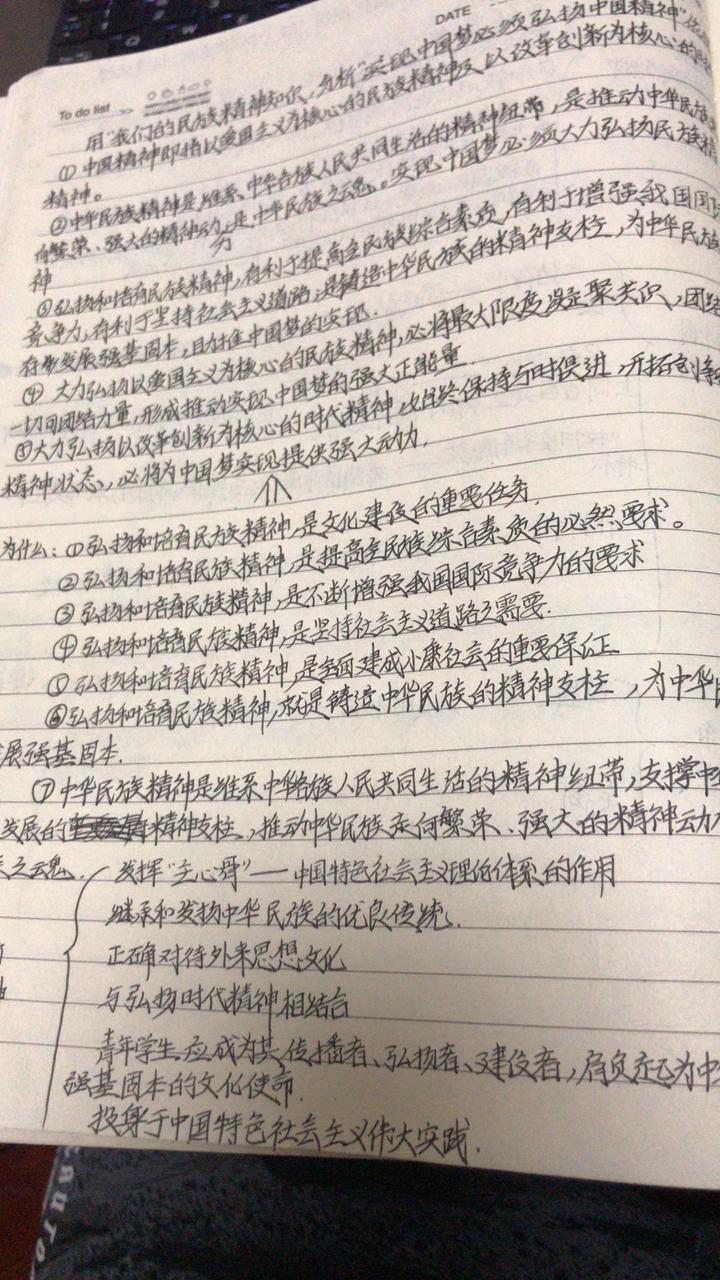 DATE
To do list >>
用"我们的民族精神知识,分析"实现中国梦必须弘扬中国精神"
①中国精神即指以爱国主义为核心的民族精神及以改革创新为核心的
精神。
②中华民族精神是维系中华各族人民共同生活的精神纽带,是推动中华民族
向繁荣、强大的精神动力是中华民族之云魂。实现中国梦必须大力弘扬民族精
神
③弘扬和培育民族精神,有利于提高全民族综合素质,有利于增强我国国际
竞争力,有利于坚持社会主义道路,是铸造中华民族的精神支柱,为中华民族
存发展强基固本,助推中国梦的实现.
④大力弘扬以爱国主义为核心的民族精神,必将最大限度凝聚共识,团结
一切可团结力量,形成推动实现中国梦的强大正能量.
⑤大力弘扬以改革创新为核心的时代精神,始终保持与时俱进,开拓创新
精神状态,必将为中国梦实现提供强大动力.
为什么:①弘扬和培育民族精神,是文化建设的重要任务.
②弘扬和培育民族精神,是提高全民族综合素质的必然要求。
③弘扬和培育民族精神,是不断增强我国国际竞争力的要求
④弘扬和培育民族精神,是坚持社会主义道路之需要.
⑤弘扬和培育民族精神,是全面建成小康社会的重要保证
⑥弘扬和培育民族精神,就是铸造中华民族的精神支柱,为中华
展强基固本.
⑦中华民族精神是维系中华各族人民共同生活的精神纽带,支撑中
发展的精神支柱,推动中华民族走向繁荣、强大的精神动力
之云魂.
发挥"主心骨"—中国特色社会主义理论体系的作用
继承和发扬中华民族的优良传统.
正确对待外来思想文化
与弘扬时代精神相结合
青年学生应成为其传播者、弘扬者、建设者,肩负起为中
强基固本的文化使命.
投身于中国特色社会主义伟大实践.